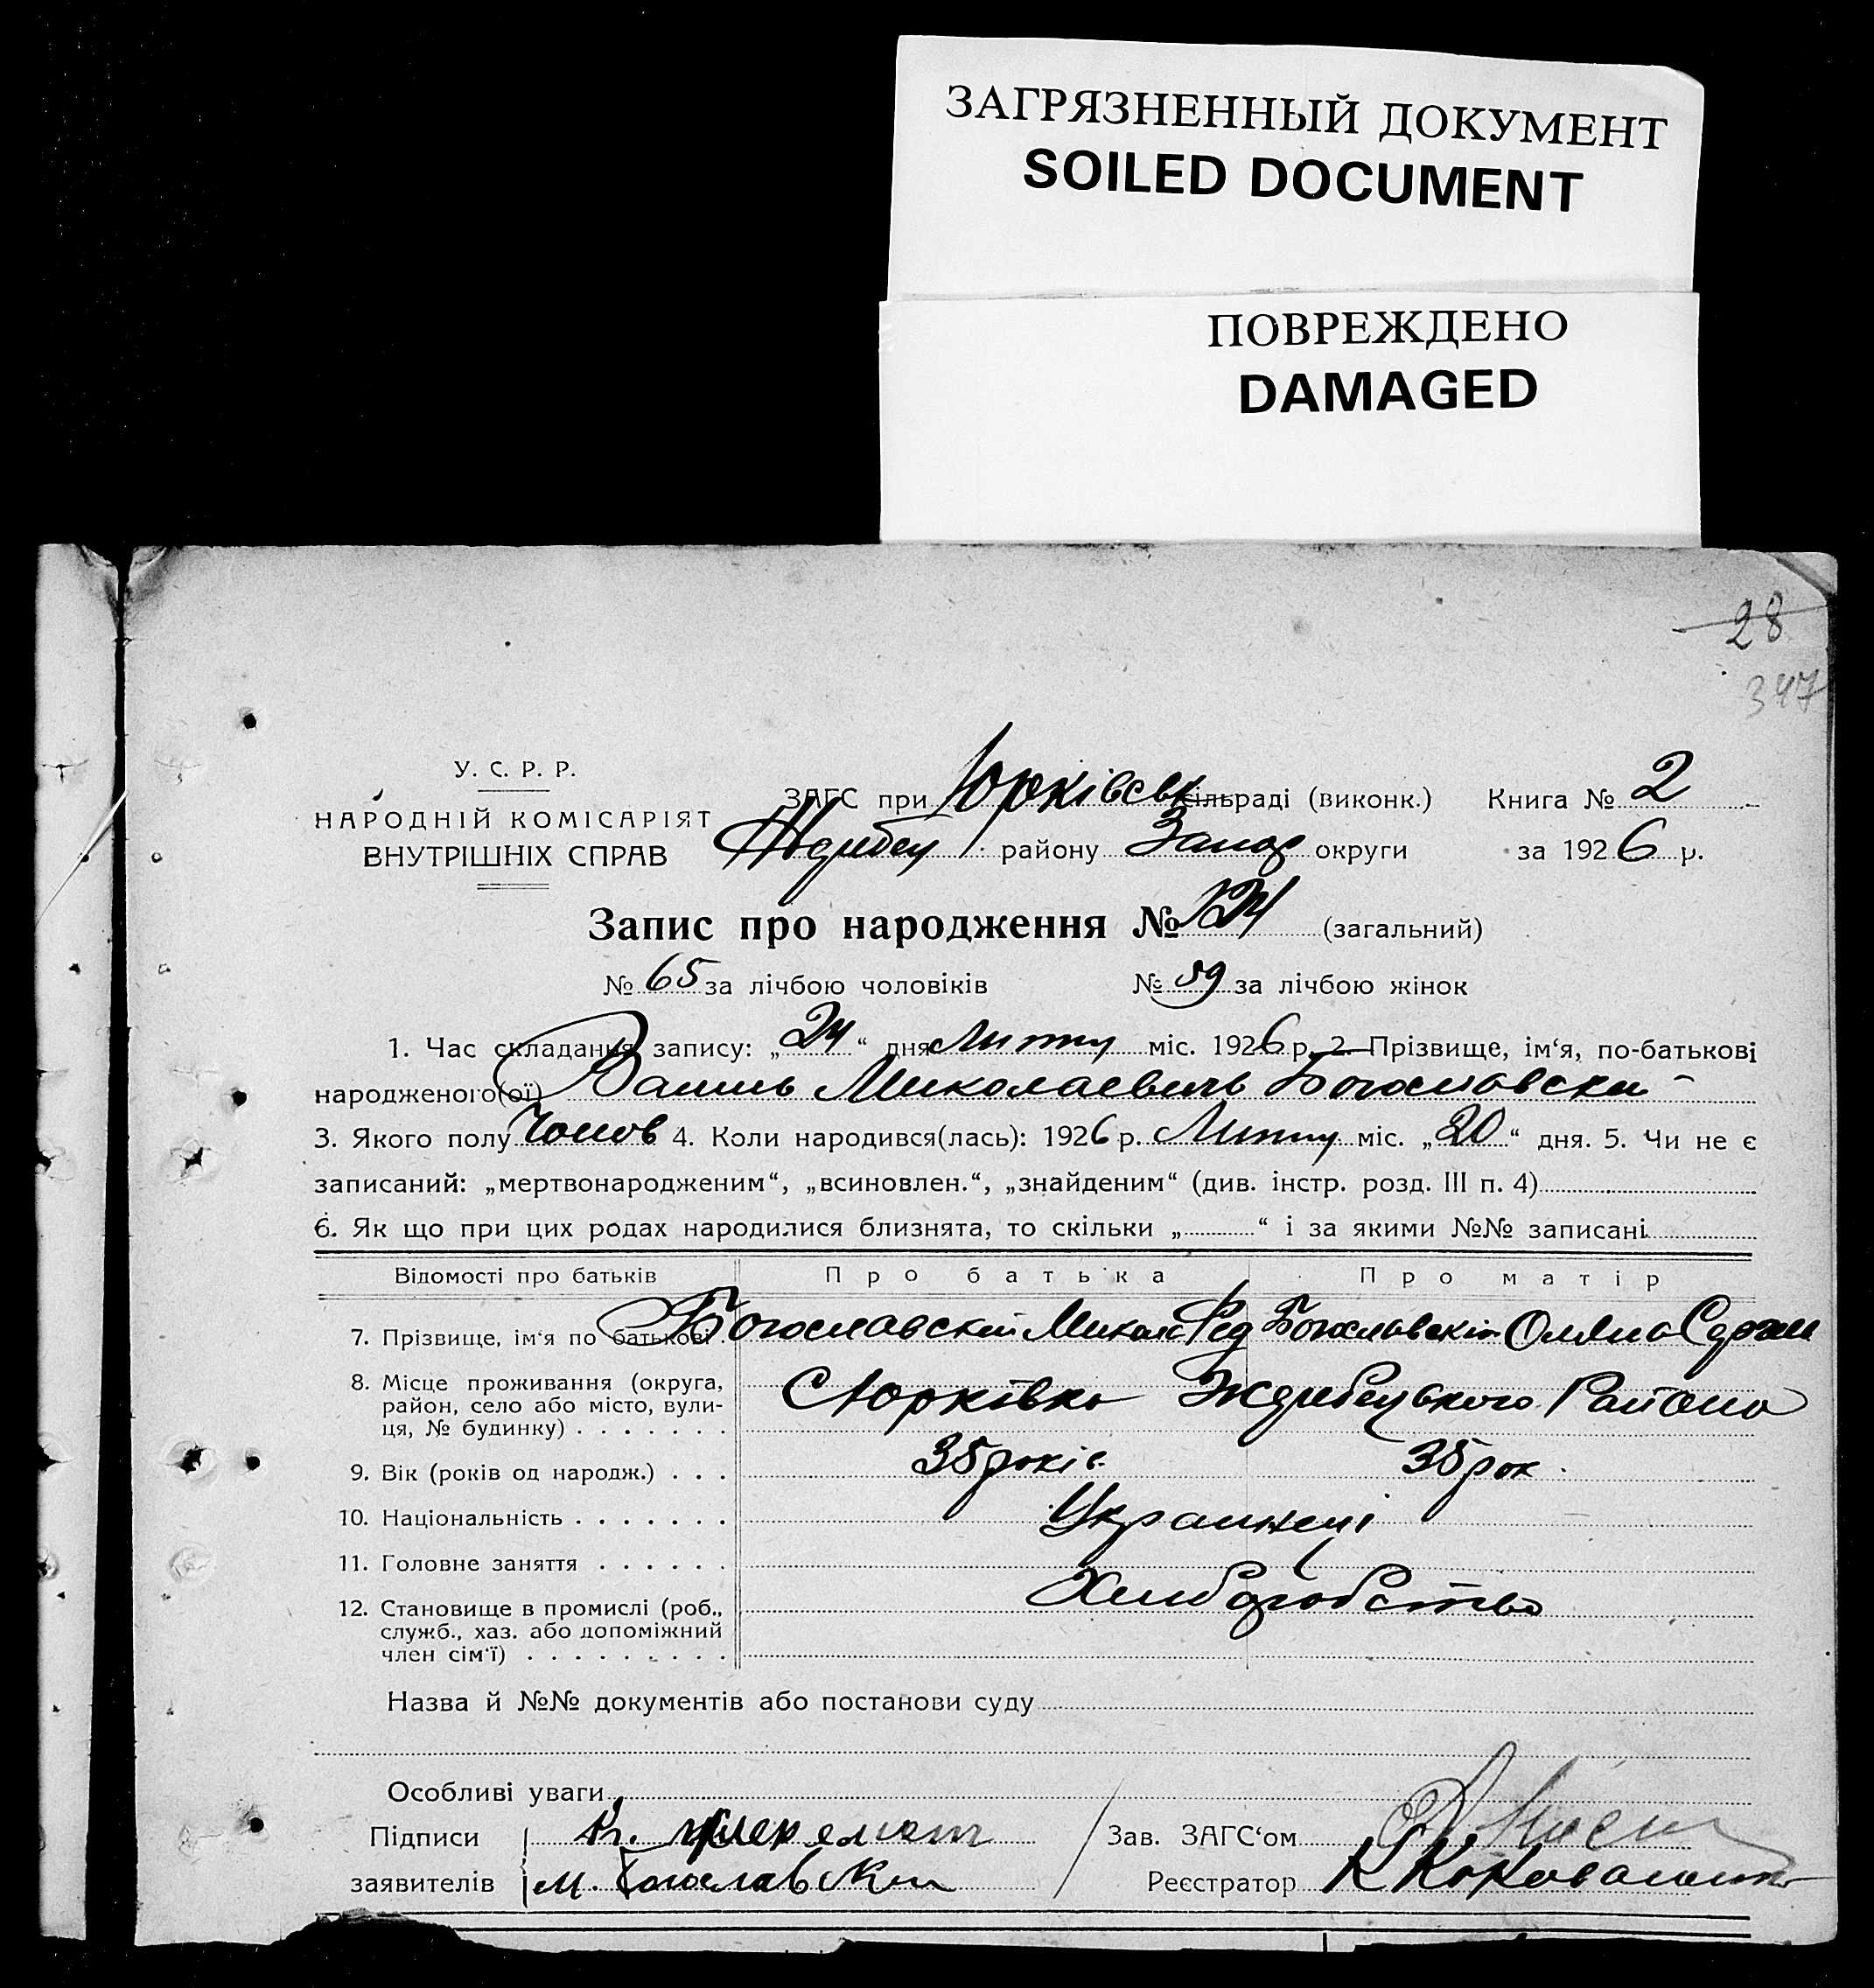 ЗАГРЯЗНЕННЫЙ ДОКУМЕНТ
SOILED DOCUMENT
ПОВРЕЖДЕНО
DAMAGED
28
347
У. С. Р. Р.
НАРОДНІЙ КОМІСАРІЯТ
ВНУТРІШНІХ СПРАВ
ЗАГС при Юрківськ сільраді (виконк.) Книга № 2
району Запор округи за 1926 р.
Запис про народження № 124 (загальний)
№ 65 за лічбою чоловіків № 59 за лічбою жінок
1. Час складання запису: „24“ дня Липня міс. 1926 р. 2. Прізвище, ім‘я, по-батькові
народженого(ої) Миколаевичь Богославский
3. Якого полу Чолов 4. Коли народився(лась): 1926 р. Липня міс. „20“ дня. 5. Чи не є
записаний: „мертвонародженим“, „всиновлен.“, „знайденим“ (див. інстр. розд. III п. 4)
6. Як що при цих родах народилися близнята, то скільки „ “ і за якими №№ записані
Відомості про батьків Про батька Про матір
7. Прізвище, ім‘я по батькові Богославский Микола Фед Богославскія Оляна
8. Місце проживання (округа,
район, село або місто, вули-
ця, № будинку) С Юрківка Ждребецького Района
9. Вік (років од народж.) 35 років 35 рок.
10. Національність Украинеці
11. Головне заняття
12. Становище в промислі (роб.,
служб., хаз. або допоміжний
член сім‘ї) Хлиборобство
Назва й №№ документів або постанови суду
Особливі уваги
Підписи Зав. ЗАГС‘ом
заявителів М. Богославский Реєстратор